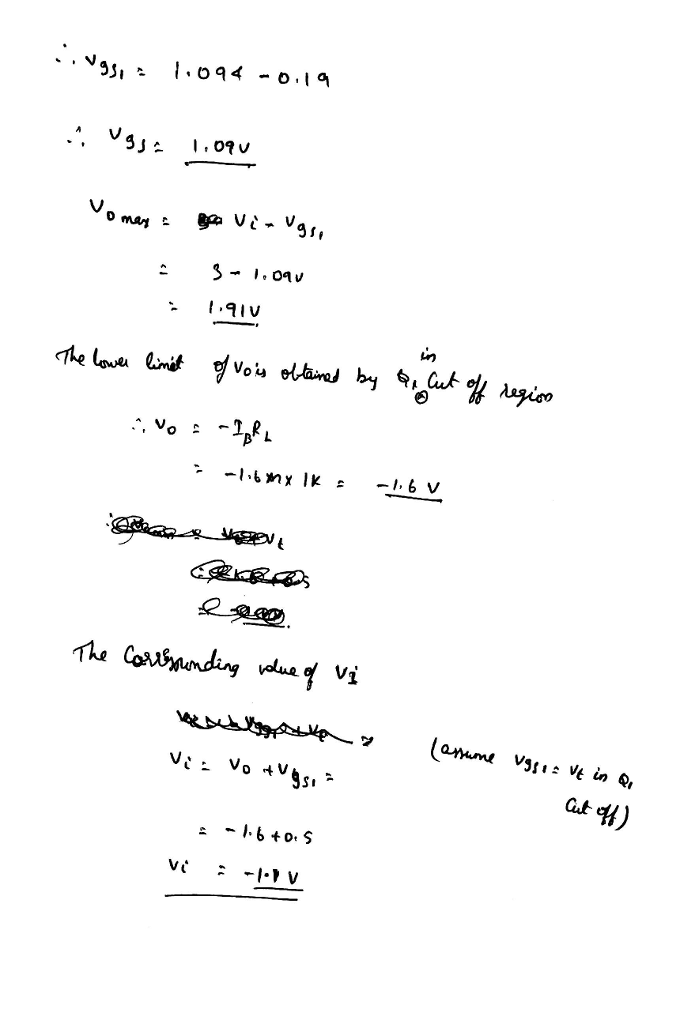 ∴ Vgs₁ = 1.094 - 0.19
∴ Vgs = 1.09V
Vo max = Vi - Vgs₁
= 3 - 1.09V
= 1.91V
The lower limit of Vo is obtained by Q₁ in Cut off region
∴ Vo = -I_B R_L
= -1.6m x 1K = -1.6 V
The Corresponding value of VI
Vi = Vo + Vgs₁ =
(assume Vgs₁ = Vt in Q₁
Cut off)
= -1.6 + 0.5
Vi = -1.1 V